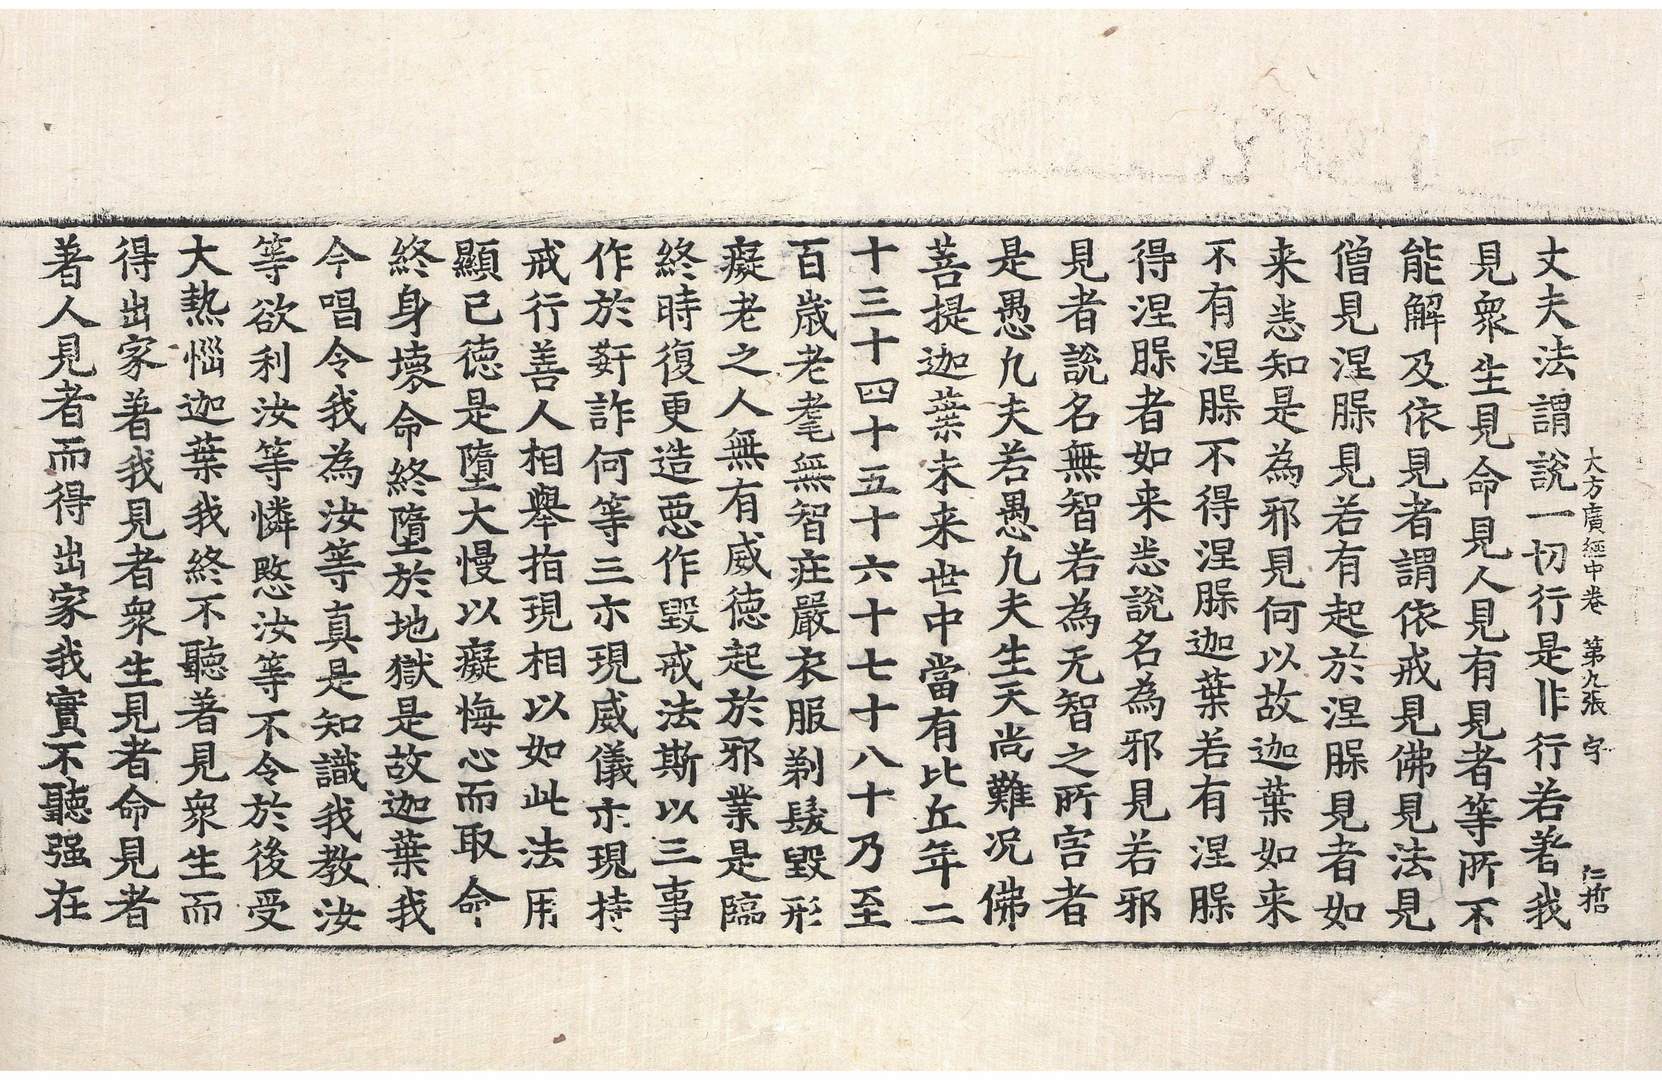 大方廣經中卷　第九張　字　仁哲
丈夫法謂說一切行是非行若著我
見衆生見命見人見有見者等所不
能解及依見者謂依戒見佛見法見
僧見涅槃見若有起於涅槃見者如
来悉知是為邪見何以故迦葉如来
不有涅槃不得涅槃迦葉若有涅槃
得涅槃者如来悉說名為邪見若邪
見者說名無智若為无智之所害者
是愚九夫若愚九夫生天尚難况佛
菩提迦葉未来世中當有比丘年二
十三十四十五十六十七十八十乃至
百歳老耄無智疰嚴衣服剃髮毀形
癡老之人無有威徳起於邪業是臨
終時復更造惡作毀戒法斯以三事
作於姧詐何等三亦現威儀亦現持
戒行善人相舉指現相以如此法用
顯已徳是墮大慢以癡悔心而取命
終身壞命終墮於地獄是故迦葉我
今唱令我為汝等真是知識我教汝
等欲利汝等憐愍汝等不令於後受
大熱惱迦葉我終不聽著見衆生而
得出家著我見者衆生見者命見者
著人見者而得出家我實不聽强在